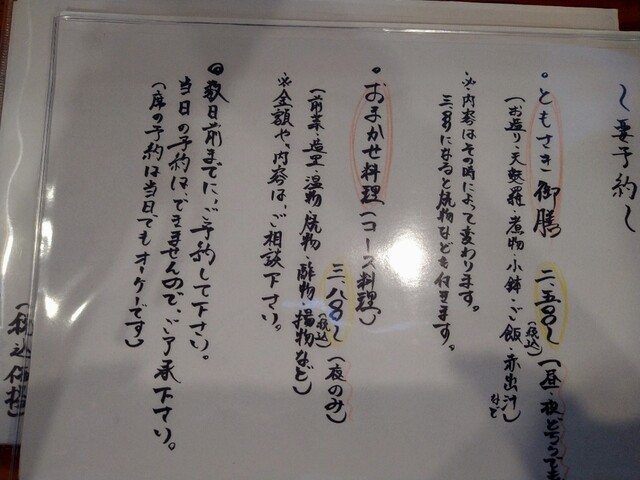 〜要予約〜
・ともさき御膳 二、五〇〇〜(税込)(昼・夜どちらでも
(お造り・天麩羅・煮物・小鉢・ご飯・赤出汁など)
※内容はその時によって変わります。
三、〇〇〇になると焼物なども付きます。
・おまかせ料理(コース料理)
三、八〇〇〜(税込)(夜のみ)
(前菜・造里・温物・焼物・酢物・揚物など)
※金額や、内容は、ご相談下さい。
◎数日前までに、ご予約して下さい。
当日の予約は、できませんので、ご了承下さい。
(席の予約は当日でもオーケーです)
(税込価格)